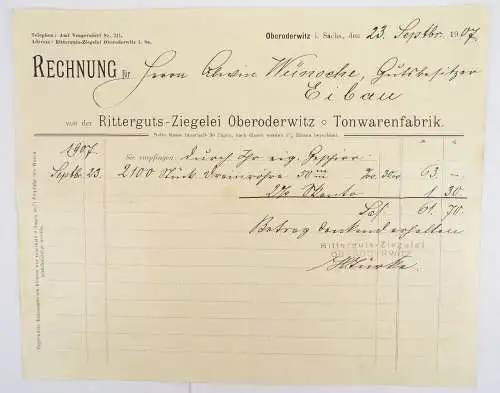 Telephon: Amt Neugersdorf Nr.
Adresse: Ritterguts-Ziegelei Oberoderwitz i. Sa.
Oberoderwitz i. Sachs., den 23. Septbr. 1907.
RECHNUNG für Herrn Alwin Wünsche, Gutsbesitzer
Eibau
von der Ritterguts-Ziegelei Oberoderwitz ◦ Tonwarenfabrik.
Netto Kasse innerhalb 30 Tagen, nach diesen werden 5% Zinsen berechnet.
1907. Sie empfingen: Durch Ihr eig. Geschirr:
Septbr. 23. 2100 Stück Drainrohre 50 mm 30 63 —
2% Skonto 1 30
61 70
Betrag dankend erhalten
Ritterguts-Ziegelei
OBERODERWITZ